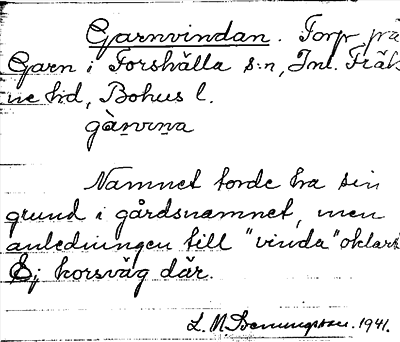 Garnvindan. Torp på
Garn i Forshälla s:n, Inl. Fräk
ne hd, Bohus l.
gàṇvıṇa
Namnet torde ha sin
grund i gårdsnamnet, men
anledningen till "vinda" oklart
Ej korsväg där.
L. M. 1941.